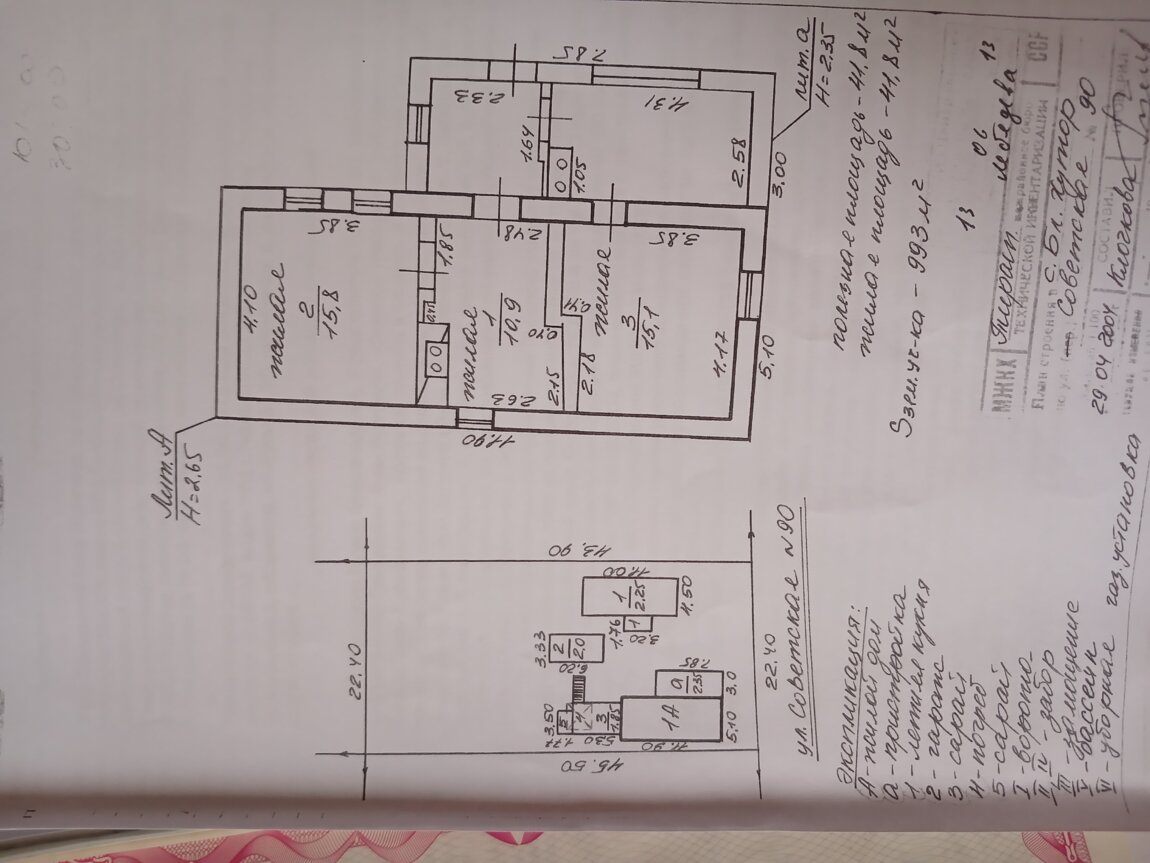 Лит. А
Н=2.65
4.10
жилая
2
15,8
3.85
1.85
жилая
1
10,9
2.48
2.63
2.15
0.40
11.90
2.18
0.41
жилая
3
15,1
3.85
4.17
5.10
2.33
1.64
1.05
4.31
7.85
2.58
3.00
лит. а
Н=2.35
полезная площадь - 41,8 м²
жилая площадь - 41,8 м²
Sзем.уч-ка - 993 м²
22.40
43.90
45.50
22.40
3.50
1.77
5
4
5.30
3
1.85
6.20
3.33
2
2.0
1.76
1
3.20
1
2.25
11.00
4.50
7.85
а
2.35
3.0
1А
11.90
5.10
ул. Советская N 90
Экспликация:
А - жилой дом
а - пристройка
1 - летняя кухня
2 - гараж
3 - сарай
4 - погреб
5 - сарай
I - ворота
II, IV - забор
III - замощение
V - бассейн
VI - уборная газ. установка
13 06 13
МЖКХ
ТЕХНИЧЕСКОЙ ИНВЕНТАРИЗАЦИИ
ССР
Лебедева
План строения в с. Бл. Хутор
по ул. Советская № 90
СОСТАВИЛ
29.04.2004 Клочкова